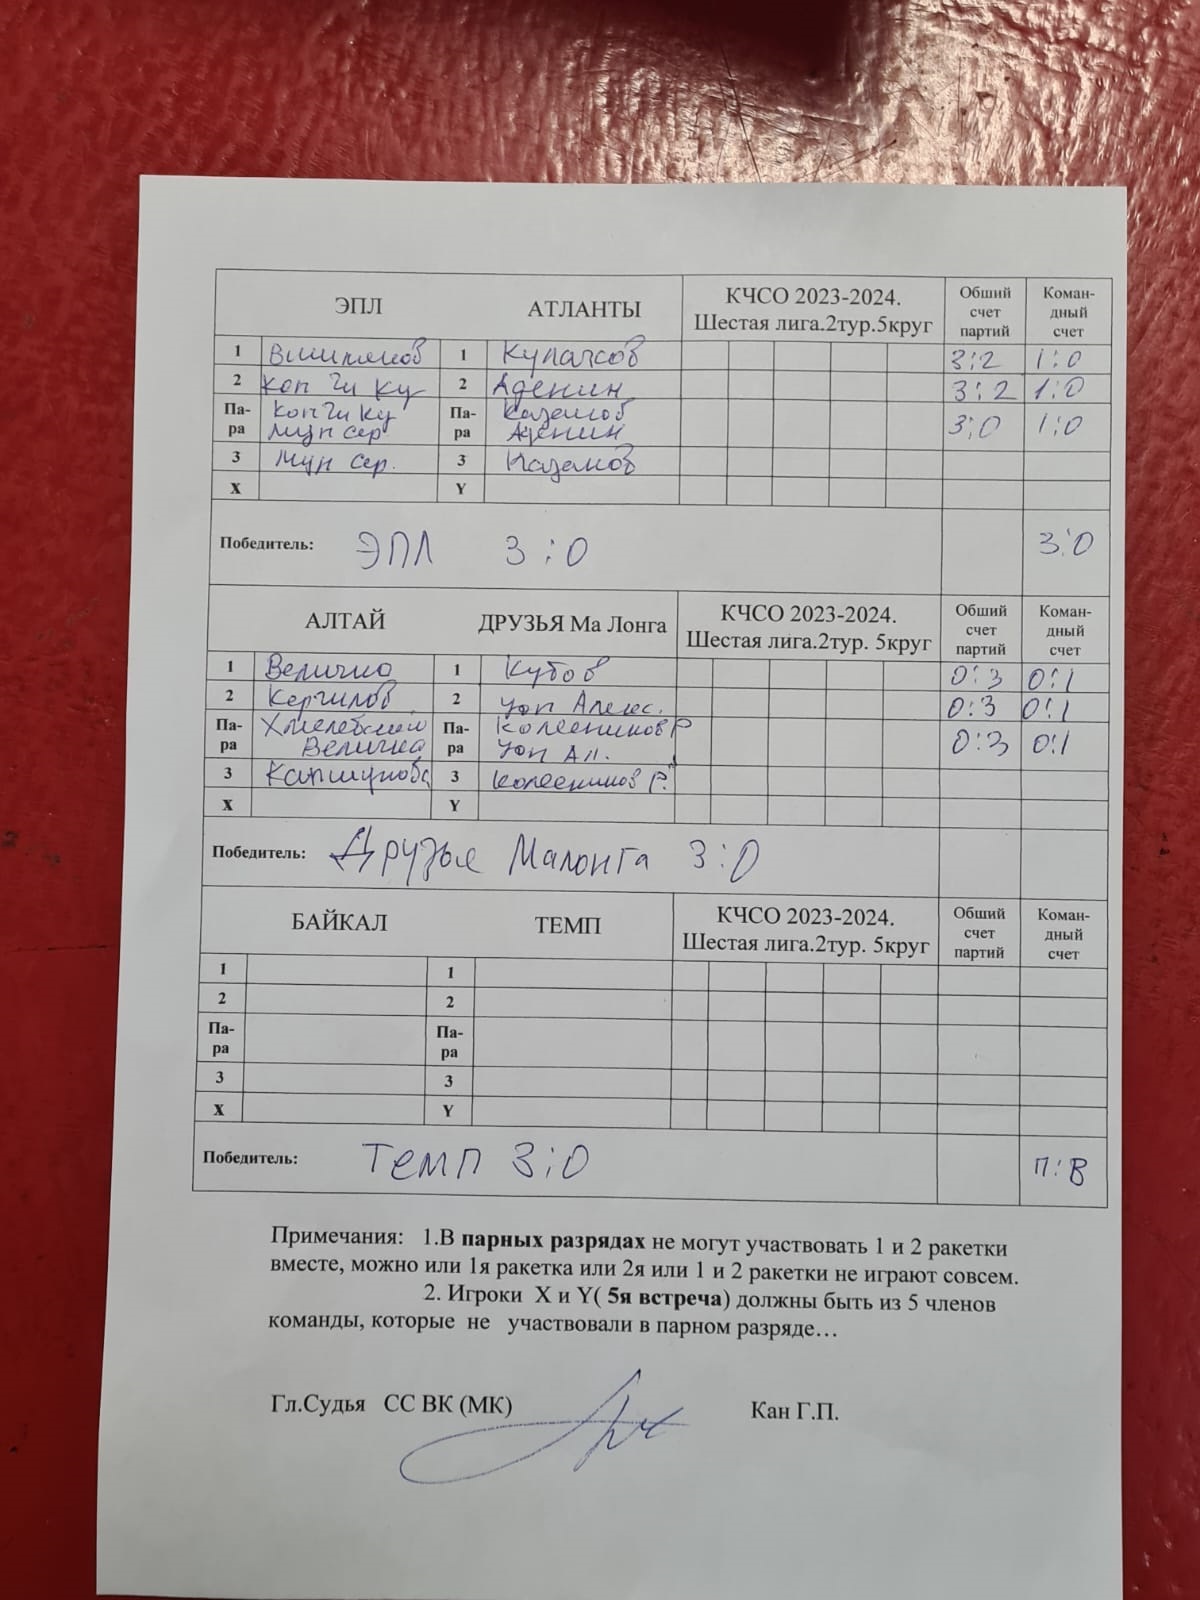 ЭПЛ АТЛАНТЫ КЧСО 2023-2024. Шестая лига.2тур.5круг Обший счет партий Коман-дный счет
1 Вишняков 1 3:2 1:0
2 Коп Чи Ку 2 Аденин 3:2 1:0
Па-ра Коп Чи Ку Па-ра Каземов 3:0 1:0
Мун Сер Аденин
3 Мун Сер. 3 Каземов
X Y
Победитель: ЭПЛ 3:0 3:0
АЛТАЙ ДРУЗЬЯ Ма Лонга КЧСО 2023-2024. Шестая лига.2тур. 5круг Обший счет партий Коман-дный счет
1 Величко 1 Кубов 0:3 0:1
2 Кергилов 2 Алекс. 0:3 0:1
Па-ра Па-ра Колесников Р 0:3 0:1
Величко Ал.
3 3 Колесников Р.
X Y
Победитель: Друзья Малонга 3:0
БАЙКАЛ ТЕМП КЧСО 2023-2024. Шестая лига.2тур. 5круг Обший счет партий Коман-дный счет
1 1
2 2
Па-ра Па-ра
3 3
X Y
Победитель: ТЕМП 3:0 П:В
Примечания: 1.В парных разрядах не могут участвовать 1 и 2 ракетки
вместе, можно или 1я ракетка или 2я или 1 и 2 ракетки не играют совсем.
2. Игроки X и Y( 5я встреча) должны быть из 5 членов
команды, которые не участвовали в парном разряде…
Гл.Судья СС ВК (МК) Кан Г.П.